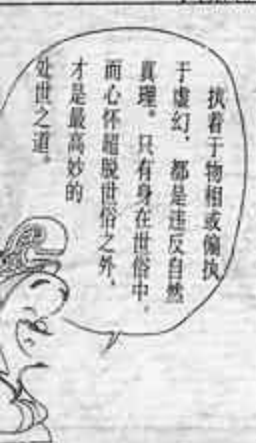 执着于物相或偏执
于虚幻，都是违反自然
真理。只有身在世俗中，
而心怀超脱世俗之外，
才是最高妙的
处世之道。